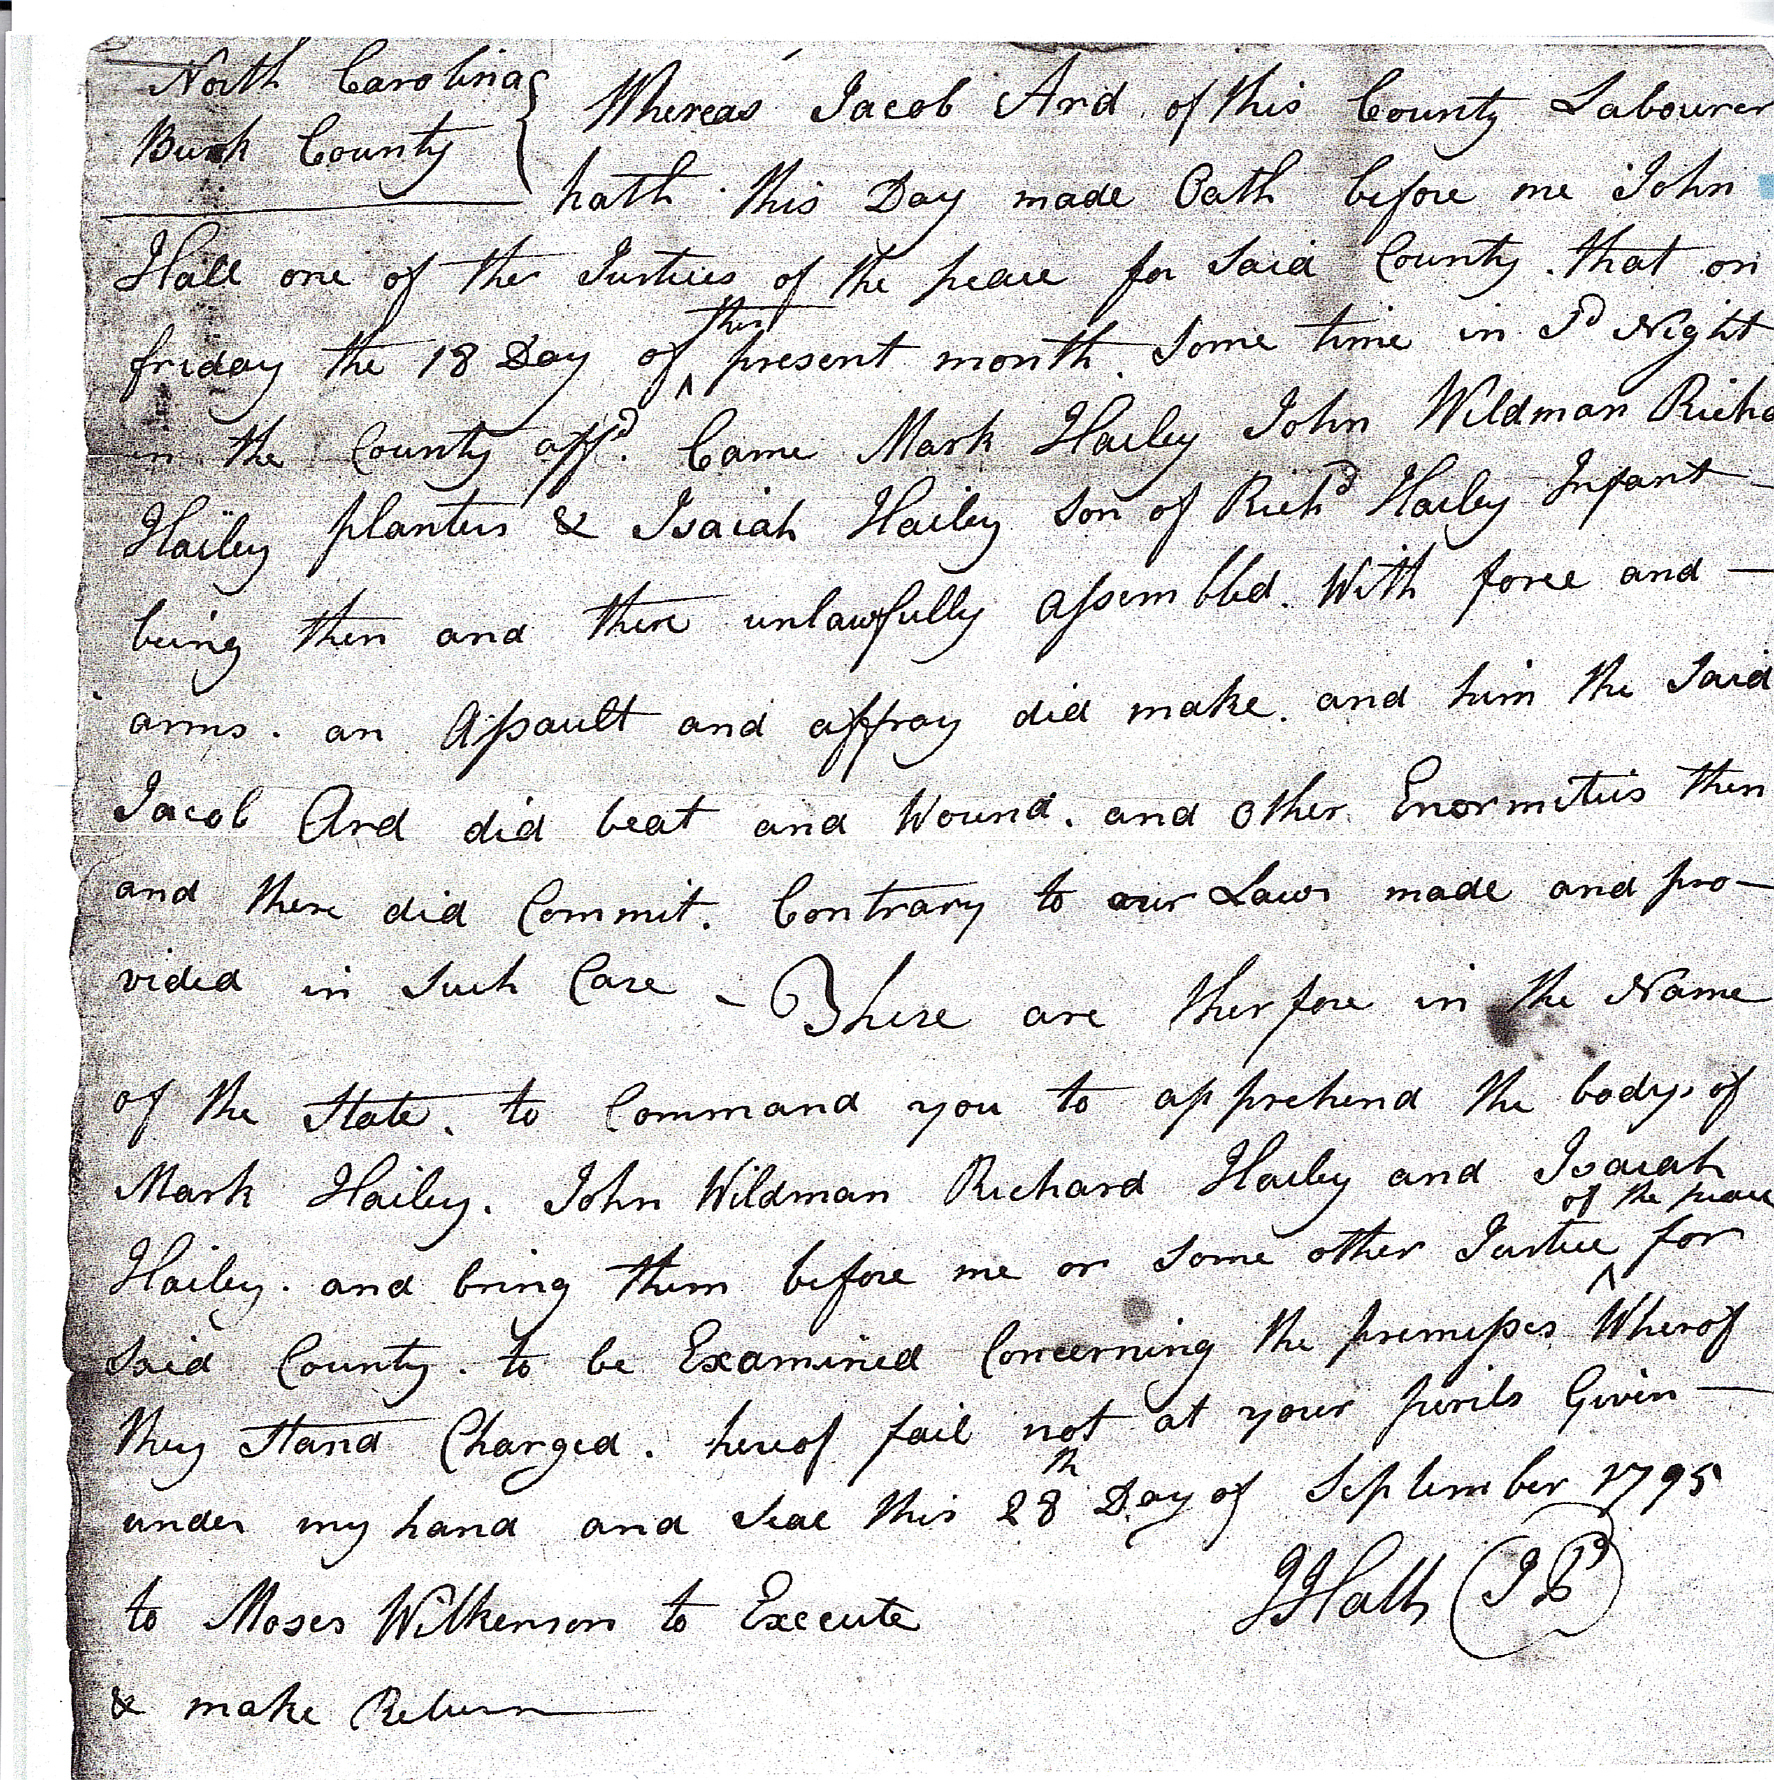 North Carolina
Burk County
Whereas Jacob Ard of this County Labourer
hath this Day made Oath before me John
Hall one of the Justices of the peace for said County. that on
friday the 18 Day of this present month. Some time in Sd Night
in the County affd. Came Mark Hailey John Wildman Richa
Hailey planters & Isaiah Hailey son of Richd Hailey Infant
being then and there unlawfully assembled. With force and —
arms. an Assault and affray did make. and him the said
Jacob Ard did beat and Wound. and other Enormities then
and there did Commit. Contrary to our Laws made and pro-
vided in such Case - These are therfore in the Name
of the State. to Command you to apprehend the bodys of
Mark Hailey. John Wildman Richard Hailey and Isaiah
Hailey. and bring them before me or some other Justice of the peace for
said County. to be Examined Concerning the premisses Wherof
they stand Charged. hereof fail not at your perils Given —
under my hand and seal this 28th Day of September 1795
to Moses Wilkerson to Execute
JHall JP
& make Return